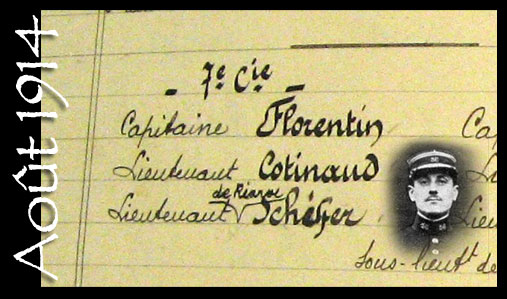 Août 1914
- 7e Cie -
Capitaine Florentin
Lieutenant Cotinaud
Lieutenant Schéfer
Cap
Lie
Lieu
Sous-lieut^t de